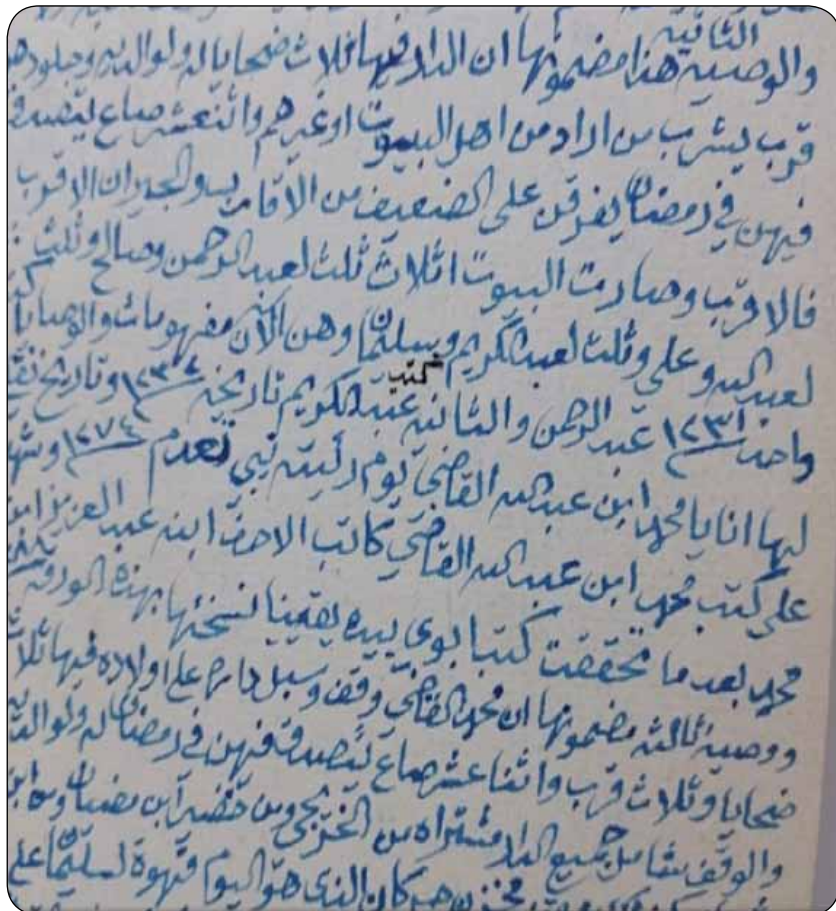 الثانية
والوصية هذا مضمونها ان الدار فيها ثلاث ضحايا له ولوالديه وجلودهن
قرب يشرب من اراد من اهل البيوت او غيرهم واثنعشر صاع يتصدق
فيهن في رمضان يفرقن على الضعيف من الاقارب والجيران الاقرب
فالاقرب وصارت البيوت اثلاث ثلث لعبدالرحمن وصالح وثلث
لعبدالله وعلي وثلث لعبدالكريم وسليمان وهن الآن مفهومات والوصايا
كتب
واحد ١٢٣١ عبدالرحمن والثانيه عبدالكريم تاريخه وتاريخ
لها انا يا محمد ابن عبدالله القاضي يوم رئيته تبي تعدم ١٢٧٤ وشهد
على كتب محمد ابن عبدالله القاضي كاتب الاحرف ابنه عبدالعزيز ابن
محمد بعد ما تحققت كتب ابوي بيده يقينا نسختها بهذه الورقه
ووصية ثالثه مضمونها ان محمد القاضي وقف وسبل داره على اولاده فيها ثلاث
ضحايا وثلاث قرب واثنا عشر صاع يتصدق فيهن في رمضان له ولوالديه
والوقف شامل جميع الدار مشتراه من الخريجي ومن ابن
كان الذي هو اليوم قهوة لسليمان على